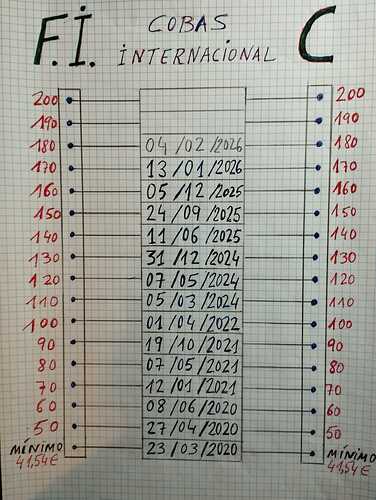 F.İ. COBAS C
İNTERNACİONAL
200 200
190 190
180 04/02/2026 180
170 13/01/2026 170
160 05/12/2025 160
150 24/09/2025 150
140 11/06/2025 140
130 31/12/2024 130
120 07/05/2024 120
110 05/03/2024 110
100 01/04/2022 100
90 19/10/2021 90
80 07/05/2021 80
70 12/01/2021 70
60 08/06/2020 60
50 27/04/2020 50
MÍNİMO 23/03/2020 MÍNİMO
41,54€ 41,54€